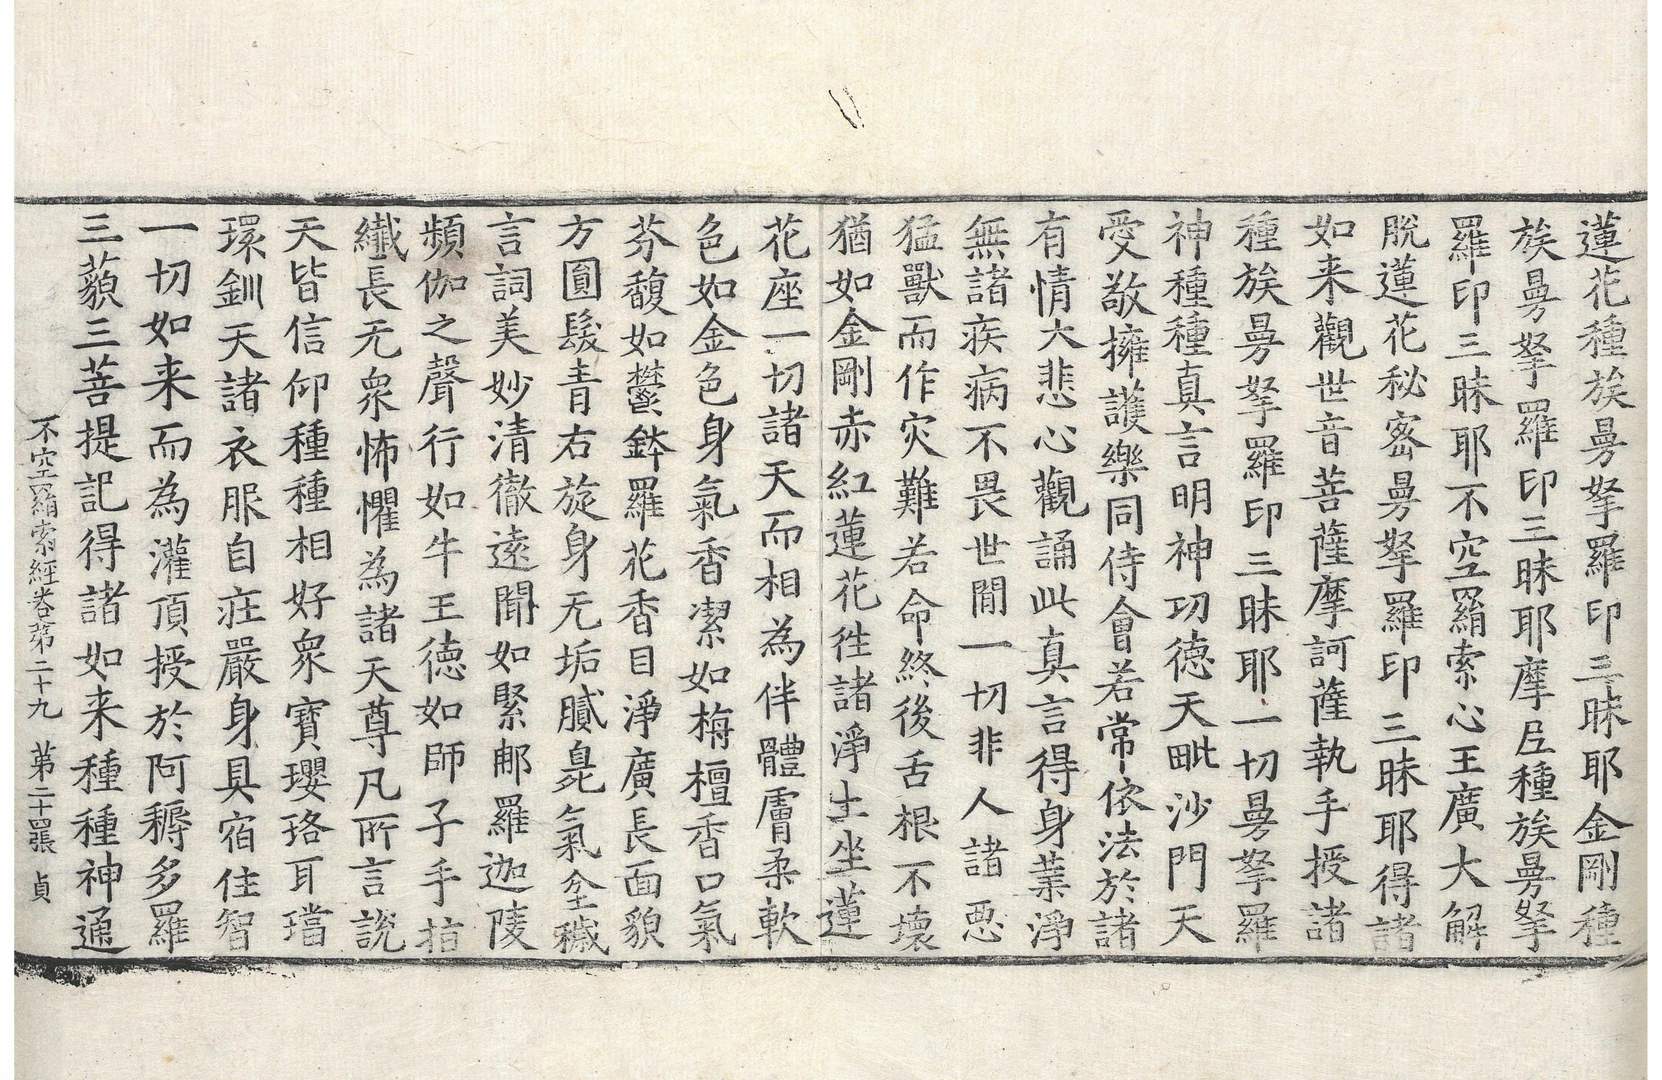 蓮花種族曼拏羅印三昧耶金剛種
族曼拏羅印三昧耶摩尼種族曼拏
羅印三昧耶不空羂索心王廣大解
脫蓮花秘密曼拏羅印三昧耶得諸
如来觀世音菩薩摩訶薩執手授諸
種族曼拏羅印三昧耶一切曼拏羅
神種種真言明神功德天毗沙門天
愛敬擁護樂同侍會若常依法於諸
有情大悲心觀誦此真言得身業淨
無諸疾病不畏世間一切非人諸惡
猛獸而作灾難若命終後舌根不壞
猶如金剛赤紅蓮花徃諸淨土坐蓮
花座一切諸天而相為伴體膚柔軟
色如金色身氣香潔如栴檀香口氣
芬馥如鬱鉢羅花香目淨廣長面貌
方圓髮青右旋身无垢膩臭氣坌穢
言詞美妙清徹遠聞如緊那羅迦陵
頻伽之聲行如牛王德如師子手指
纖長无衆怖懼為諸天尊凡所言說
天皆信仰種種相好衆寶瓔珞耳璫
環釧天諸衣服自莊嚴身具宿住智
一切如来而為灌頂授於阿耨多羅
三藐三菩提記得諸如来種種神通
不空羂索經卷第二十九 第二十四張 貞